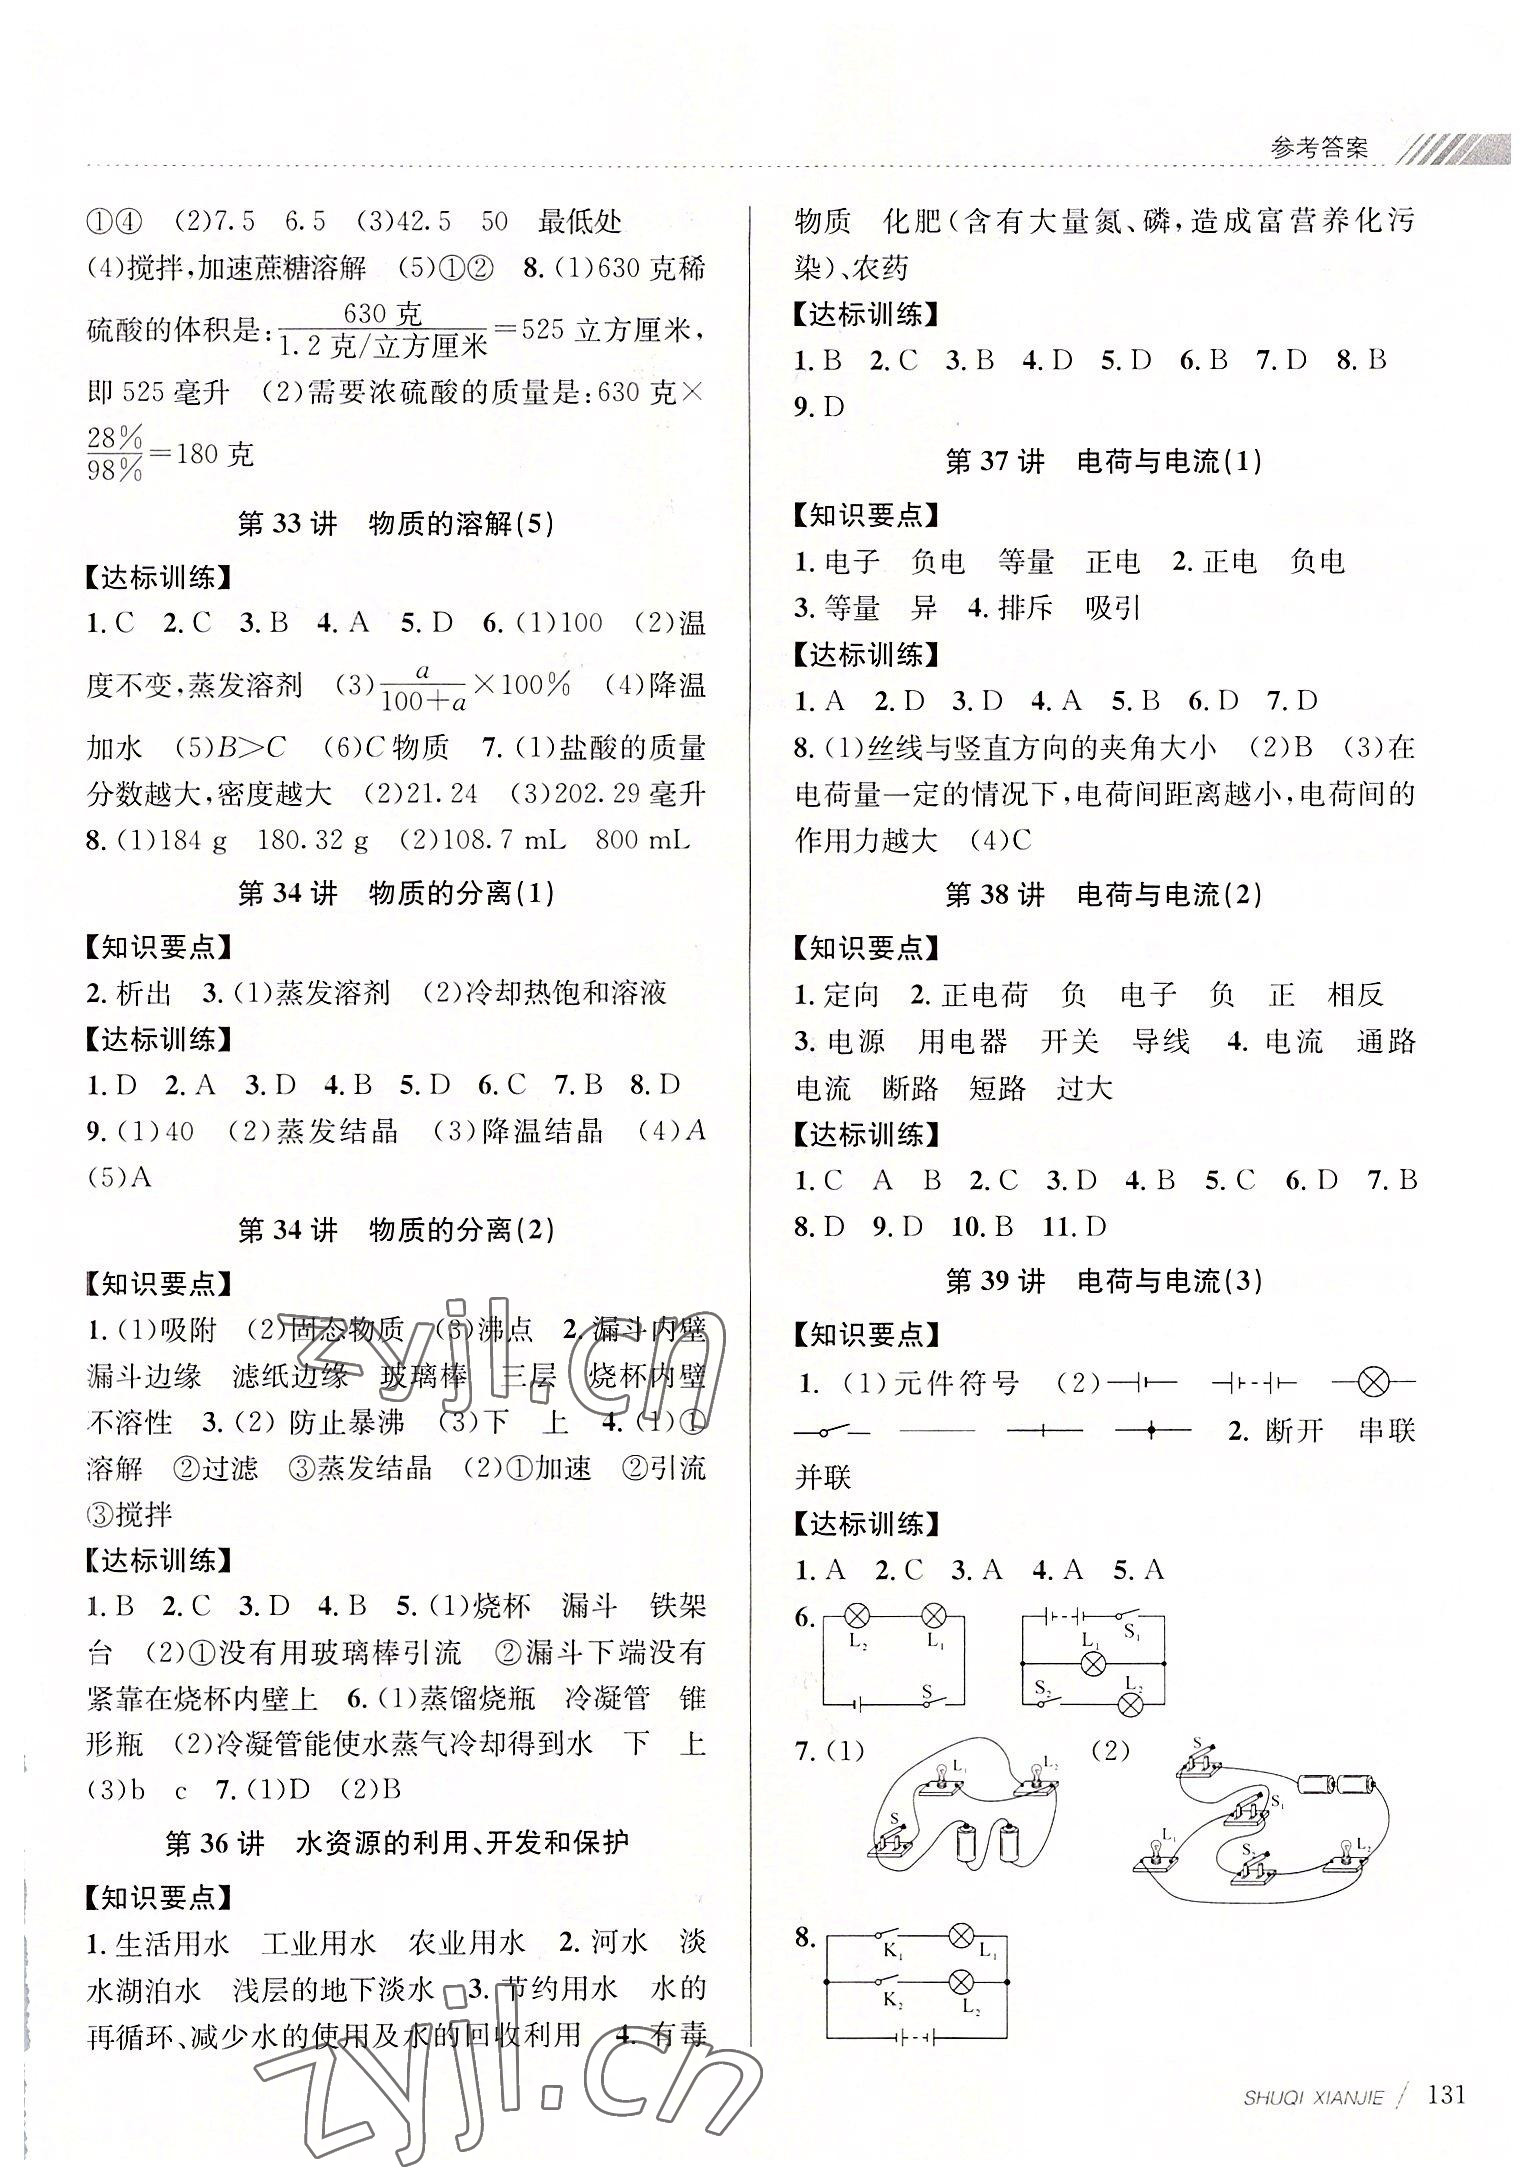 参考答案
①④ (2)7.5 6.5 (3)42.5 50 最低处
(4)搅拌,加速蔗糖溶解 (5)①② 8.(1)630克稀
硫酸的体积是:630克/1.2克/立方厘米=525立方厘米,
即525毫升 (2)需要浓硫酸的质量是:630克×
28%/98%=180克
第33讲 物质的溶解(5)
【达标训练】
1.C 2.C 3.B 4.A 5.D 6.(1)100 (2)温
度不变,蒸发溶剂 (3)a/100+a×100% (4)降温
加水 (5)B>C (6)C物质 7.(1)盐酸的质量
分数越大,密度越大 (2)21.24 (3)202.29毫升
8.(1)184 g 180.32 g (2)108.7 mL 800 mL
第34讲 物质的分离(1)
【知识要点】
2.析出 3.(1)蒸发溶剂 (2)冷却热饱和溶液
【达标训练】
1.D 2.A 3.D 4.B 5.D 6.C 7.B 8.D
9.(1)40 (2)蒸发结晶 (3)降温结晶 (4)A
(5)A
第34讲 物质的分离(2)
【知识要点】
1.(1)吸附 (2)固态物质 (3)沸点 2.漏斗内壁
漏斗边缘 滤纸边缘 玻璃棒 三层 烧杯内壁
不溶性 3.(2)防止暴沸 (3)下 上 4.(1)①
溶解 ②过滤 ③蒸发结晶 (2)①加速 ②引流
③搅拌
【达标训练】
1.B 2.C 3.D 4.B 5.(1)烧杯 漏斗 铁架
台 (2)①没有用玻璃棒引流 ②漏斗下端没有
紧靠在烧杯内壁上 6.(1)蒸馏烧瓶 冷凝管 锥
形瓶 (2)冷凝管能使水蒸气冷却得到水 下 上
(3)b c 7.(1)D (2)B
第36讲 水资源的利用、开发和保护
【知识要点】
1.生活用水 工业用水 农业用水 2.河水 淡
水湖泊水 浅层的地下淡水 3.节约用水 水的
再循环、减少水的使用及水的回收利用 4.有毒
物质 化肥(含有大量氮、磷,造成富营养化污
染)、农药
【达标训练】
1.B 2.C 3.B 4.D 5.D 6.B 7.D 8.B
9.D
第37讲 电荷与电流(1)
【知识要点】
1.电子 负电 等量 正电 2.正电 负电
3.等量 异 4.排斥 吸引
【达标训练】
1.A 2.D 3.D 4.A 5.B 6.D 7.D
8.(1)丝线与竖直方向的夹角大小 (2)B (3)在
电荷量一定的情况下,电荷间距离越小,电荷间的
作用力越大 (4)C
第38讲 电荷与电流(2)
【知识要点】
1.定向 2.正电荷 负 电子 负 正 相反
3.电源 用电器 开关 导线 4.电流 通路
电流 断路 短路 过大
【达标训练】
1.C A B 2.C 3.D 4.B 5.C 6.D 7.B
8.D 9.D 10.B 11.D
第39讲 电荷与电流(3)
【知识要点】
1.(1)元件符号 (2)
2.断开 串联
并联
【达标训练】
1.A 2.C 3.A 4.A 5.A
6. L2 L1 S S1 L1 S2 L2
7.(1) L1 L2 S (2) S S1 S2 L1 L2
8. K1 L1 K2 L2
zyjl.cn
zyjl.cn
SHUQI XIANJIE 131